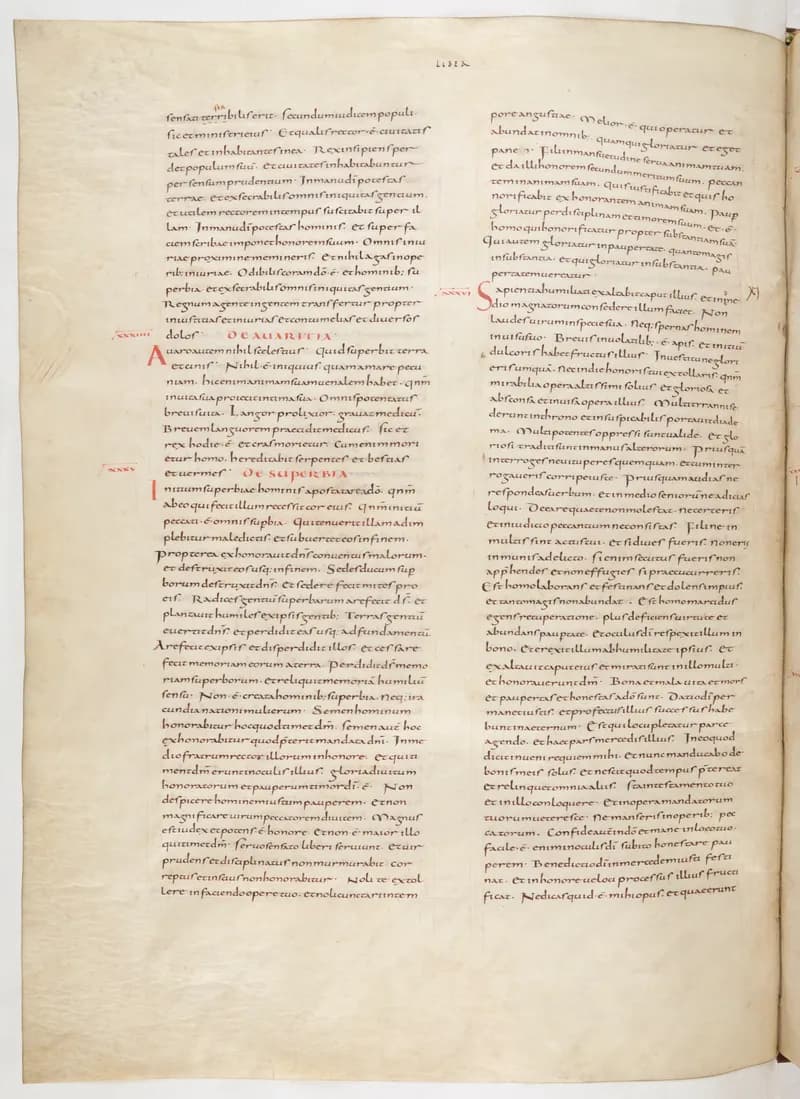 LIBER
sensati terribilis erit. Secundum iudicem populi
sic et ministri eius. Et qualis rector .ē. ciuitatis
tales et inhabitantes in ea. Rex insipiens per
det populum suū. Et ciuitates inhabitabuntur
per sensum prudentium. In manu dī potestas
terrae. et exsecrabilis omnis iniquitas gentium.
et utilem rectorem in tempus suscitabit super il
lam. In manu dī potestas hominis. et super fa
ciem scribae imponet honorem suum. Omnis iniu
riae proximi ne memineris. Et nihil agas in ope
rib; iniuriae. Odibilis coram dō .ē. et hominib; su
perbia. et exsecrabilis omnis iniquitas gentium.
Regnum a gente in gentem transfertur propter
iniustitias et iniurias et contumelias et diuersos
XXXIIII dolos. DE AUARITIA
Auaro autem nihil scelestius. Quid superbit terra
et cinis. Nihil .ē. iniquius quam amare pecu
niam. hic enim animam suam uenalem habet. qnm̄
in uita sua proiecit intima sua. Omnis potentatus
breui uita. Langor prolixior. grauat medicū.
Breuem languorem praecidit medicus. Sic et
rex hodie .ē. et cras morietur. Cum enim mori
etur homo. hereditabit serpentes et bestias
XXXV et uermes. DE SUPERBIA
Initium superbiae hominis apostatare a dō. qnm̄
ab eo qui fecit illum recessit cor eius. Qnm̄ initiū
peccati .ē. omnis supbia. Qui tenuerit illam adim
plebitur maledictis. et subuertet eos in finem.
Propterea exhonorauit dns̄ conuentus malorum.
et destruxit eos usq; in finem. Sedes ducum sup
borum destruxit dns̄. Et sedere fecit mites pro
eis. Radices gentiū superbarum arefecit ds̄. et
plantauit humiles ex ipsis gentib; Terras gentiū
euertit dns̄. et perdidit eas usq; ad fundamentū.
Arefecit ex ipsis et disperdidit illos. et cessare
fecit memoriam eorum a terra. Perdidit ds̄ memo
riam superborum. et reliquit memoriā humiliū
sensu. Non .ē. creata hominib; superbia. Neq; ira
cundia nationi mulierum. Semen hominum
honorabitur hoc quod timet dm̄. semen autē hoc
exhonorabitur quod pterit mandata dn̄i. In me
dio fratrum rector illorum in honore. et qui ti
ment dm̄ erunt in oculis illius. gloria diuitum
honoratorum et pauperum timor dī .ē. Non
despicere hominem iustum pauperem. et non
magnificare uirum peccatorem diuitem. Magnus
est iudex et potens .ē. honore. Et non .ē. maior illo
qui timet dm̄. Seruo sensato liberi seruiunt. Et uir
prudens et disciplinatus non murmurabit cor
reptus et inscius non honorabitur. Noli te extol
lere in faciendo opere tuo. et noli cunctari in tem
pore angustiae. Melior .ē. qui operatur et
abundat in omnib; quam qui gloriatur et eget
pane. Fili in mansuetudine serua animam tuam.
et da illi honorem secundum meritum suum. peccan
tem in animam suam. quis iustificabit et quis ho
norificabit exhonorantem animam suam. Paup
gloriatur per disciplinam et timorem suum. et .ē.
homo qui honorificatur propter substantiam suā.
Qui autem gloriatur in paupertate. quanto magis
in substantia. et qui gloriatur in substantia. pau
pertatem uereatur.
XXXVI Sapientia humiliati exaltabit caput illius. et in me
dio magnatorum consedere illum faciet. Non
laudes uirum in specie sua. Neq; spernas hominem
in uisu suo. Breuis in uolatilib; .ē. apis. et initiū
dulcoris habet fructus illius. In uestitu ne glori
eris umquā. Nec in die honoris tui extollaris. qnm̄
mirabilia opera altissimi solius et gloriosa et
absconsa et inuisa opera illius. Multi tyranni se
derunt in throno et insuspicabilis portauit diade
ma. Multi potentes oppressi sunt ualide. Et glo
riosi traditi sunt in manus alterorum. Priusquā
interroges ne uituperes quemquam. et cum inter
rogaueris corripe iuste. Priusquam audias ne
respondeas uerbum. et in medio seniorū ne adicias
loqui. De ea re quae te non molestat. ne certeris.
et in iudicio peccantium ne consistas. Fili ne in
multis sint actus tui. et si diues fueris. non eris
inmunis a delicto. Si enim secutus fueris non
apphendes et non effugies si praecucurreris.
Est homo laborans et festinans et dolens impius.
et tanto magis non abundat. Est homo marcidus
egens recuperatione. plus deficiens uirtute et
abundans paupertate. Et oculus dī respexit illum in
bono. et erexit illum ab humilitate ipsius. Et
exaltauit caput eius et mirati sunt in illo multi.
et honorauerunt dm̄. Bona et mala uita et mors
et paupertas et honestas a dō sunt. Datio dī per
manet iustis. et profectus illius successus habe
bunt in aeternum. Est qui locupletatur parce
agendo. et haec pars mercedis illius. In eo quod
dicit inueni requiem mihi. et nunc manducabo de
bonis meis solus. et nescit quod tempus pter eat
et relinquet omnia alus. Sta in testamento tuo
et in illo conloquere. et in opera mandatorum
tuorum ueteresce. Ne manseris in operib; pec
catorum. Confide autē in dō et mane in loco tuo
facile .ē. enim in oculis dī subito honestare pau
perem. Benedictio dī in mercedem iusti festi
nat. et in honore ueloci processus illius fructi
ficat. Ne dicas quid .ē. mihi opus. et quae erunt